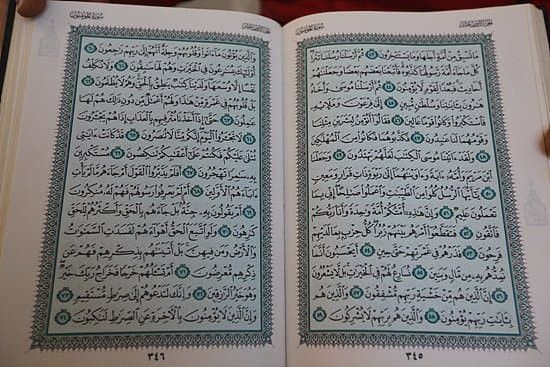 سُورَةُ المُؤْمِنُونَ
الجُزْءُ الثَّامِنَ عَشَرَ
مَا تَسْبِقُ مِنْ أُمَّةٍ أَجَلَهَا وَمَا يَسْتَـْٔخِرُونَ ٤٣ ثُمَّ أَرْسَلْنَا رُسُلَنَا تَتْرَا
كُلَّ مَا جَآءَ أُمَّةً رَّسُولُهَا كَذَّبُوهُ فَأَتْبَعْنَا بَعْضَهُم بَعْضًا وَجَعَلْنَٰهُمْ
أَحَادِيثَ فَبُعْدًا لِّقَوْمٍ لَّا يُؤْمِنُونَ ٤٤ ثُمَّ أَرْسَلْنَا مُوسَىٰ وَأَخَاهُ
هَٰرُونَ بِـَٔايَٰتِنَا وَسُلْطَٰنٍ مُّبِينٍ ٤٥ إِلَىٰ فِرْعَوْنَ وَمَلَإِي۟هِۦ
فَٱسْتَكْبَرُوا۟ وَكَانُوا۟ قَوْمًا عَالِينَ ٤٦ فَقَالُوٓا۟ أَنُؤْمِنُ لِبَشَرَيْنِ مِثْلِنَا
وَقَوْمُهُمَا لَنَا عَٰبِدُونَ ٤٧ فَكَذَّبُوهُمَا فَكَانُوا۟ مِنَ ٱلْمُهْلَكِينَ
٤٨ وَلَقَدْ ءَاتَيْنَا مُوسَى ٱلْكِتَٰبَ لَعَلَّهُمْ يَهْتَدُونَ ٤٩ وَجَعَلْنَا
ٱبْنَ مَرْيَمَ وَأُمَّهُۥٓ ءَايَةً وَءَاوَيْنَٰهُمَآ إِلَىٰ رَبْوَةٍ ذَاتِ قَرَارٍ وَمَعِينٍ
٥٠ يَٰٓأَيُّهَا ٱلرُّسُلُ كُلُوا۟ مِنَ ٱلطَّيِّبَٰتِ وَٱعْمَلُوا۟ صَٰلِحًا إِنِّى بِمَا
تَعْمَلُونَ عَلِيمٌ ٥١ وَإِنَّ هَٰذِهِۦٓ أُمَّتُكُمْ أُمَّةً وَٰحِدَةً وَأَنَا۠ رَبُّكُمْ
فَٱتَّقُونِ ٥٢ فَتَقَطَّعُوٓا۟ أَمْرَهُم بَيْنَهُمْ زُبُرًا كُلُّ حِزْبٍۭ بِمَا لَدَيْهِمْ
فَرِحُونَ ٥٣ فَذَرْهُمْ فِى غَمْرَتِهِمْ حَتَّىٰ حِينٍ ٥٤ أَيَحْسَبُونَ أَنَّمَا
نُمِدُّهُم بِهِۦ مِن مَّالٍ وَبَنِينَ ٥٥ نُسَارِعُ لَهُمْ فِى ٱلْخَيْرَٰتِ بَل لَّا يَشْعُرُونَ
٥٦ إِنَّ ٱلَّذِينَ هُم مِّنْ خَشْيَةِ رَبِّهِم مُّشْفِقُونَ ٥٧ وَٱلَّذِينَ هُم
بِـَٔايَٰتِ رَبِّهِمْ يُؤْمِنُونَ ٥٨ وَٱلَّذِينَ هُم بِرَبِّهِمْ لَا يُشْرِكُونَ ٥٩
٣٤٥
الجُزْءُ الثَّامِنَ عَشَرَ
سُورَةُ المُؤْمِنُونَ
وَٱلَّذِينَ يُؤْتُونَ مَآ ءَاتَوا۟ وَّقُلُوبُهُمْ وَجِلَةٌ أَنَّهُمْ إِلَىٰ رَبِّهِمْ رَٰجِعُونَ ٦٠
أُو۟لَٰٓئِكَ يُسَٰرِعُونَ فِى ٱلْخَيْرَٰتِ وَهُمْ لَهَا سَٰبِقُونَ ٦١ وَلَا نُكَلِّفُ
نَفْسًا إِلَّا وُسْعَهَا وَلَدَيْنَا كِتَٰبٌ يَنطِقُ بِٱلْحَقِّ وَهُمْ لَا يُظْلَمُونَ ٦٢
بَلْ قُلُوبُهُمْ فِى غَمْرَةٍ مِّنْ هَٰذَا وَلَهُمْ أَعْمَٰلٌ مِّن دُونِ ذَٰلِكَ هُمْ لَهَا
عَٰمِلُونَ ٦٣ حَتَّىٰٓ إِذَآ أَخَذْنَا مُتْرَفِيهِم بِٱلْعَذَابِ إِذَا هُمْ يَجْـَٔرُونَ
٦٤ لَا تَجْـَٔرُوا۟ ٱلْيَوْمَ إِنَّكُم مِّنَّا لَا تُنصَرُونَ ٦٥ قَدْ كَانَتْ ءَايَٰتِى
تُتْلَىٰ عَلَيْكُمْ فَكُنتُمْ عَلَىٰٓ أَعْقَٰبِكُمْ تَنكِصُونَ ٦٦ مُسْتَكْبِرِينَ
بِهِۦ سَٰمِرًا تَهْجُرُونَ ٦٧ أَفَلَمْ يَدَّبَّرُوا۟ ٱلْقَوْلَ أَمْ جَآءَهُم مَّا لَمْ يَأْتِ
ءَابَآءَهُمُ ٱلْأَوَّلِينَ ٦٨ أَمْ لَمْ يَعْرِفُوا۟ رَسُولَهُمْ فَهُمْ لَهُۥ مُنكِرُونَ
٦٩ أَمْ يَقُولُونَ بِهِۦ جِنَّةٌۢ بَلْ جَآءَهُم بِٱلْحَقِّ وَأَكْثَرُهُمْ لِلْحَقِّ
كَٰرِهُونَ ٧٠ وَلَوِ ٱتَّبَعَ ٱلْحَقُّ أَهْوَآءَهُمْ لَفَسَدَتِ ٱلسَّمَٰوَٰتُ
وَٱلْأَرْضُ وَمَن فِيهِنَّ بَلْ أَتَيْنَٰهُم بِذِكْرِهِمْ فَهُمْ عَن
ذِكْرِهِم مُّعْرِضُونَ ٧١ أَمْ تَسْـَٔلُهُمْ خَرْجًا فَخَرَاجُ رَبِّكَ خَيْرٌ
وَهُوَ خَيْرُ ٱلرَّٰزِقِينَ ٧٢ وَإِنَّكَ لَتَدْعُوهُمْ إِلَىٰ صِرَٰطٍ مُّسْتَقِيمٍ ٧٣
وَإِنَّ ٱلَّذِينَ لَا يُؤْمِنُونَ بِٱلْـَٔاخِرَةِ عَنِ ٱلصِّرَٰطِ لَنَٰكِبُونَ ٧٤
٣٤٦